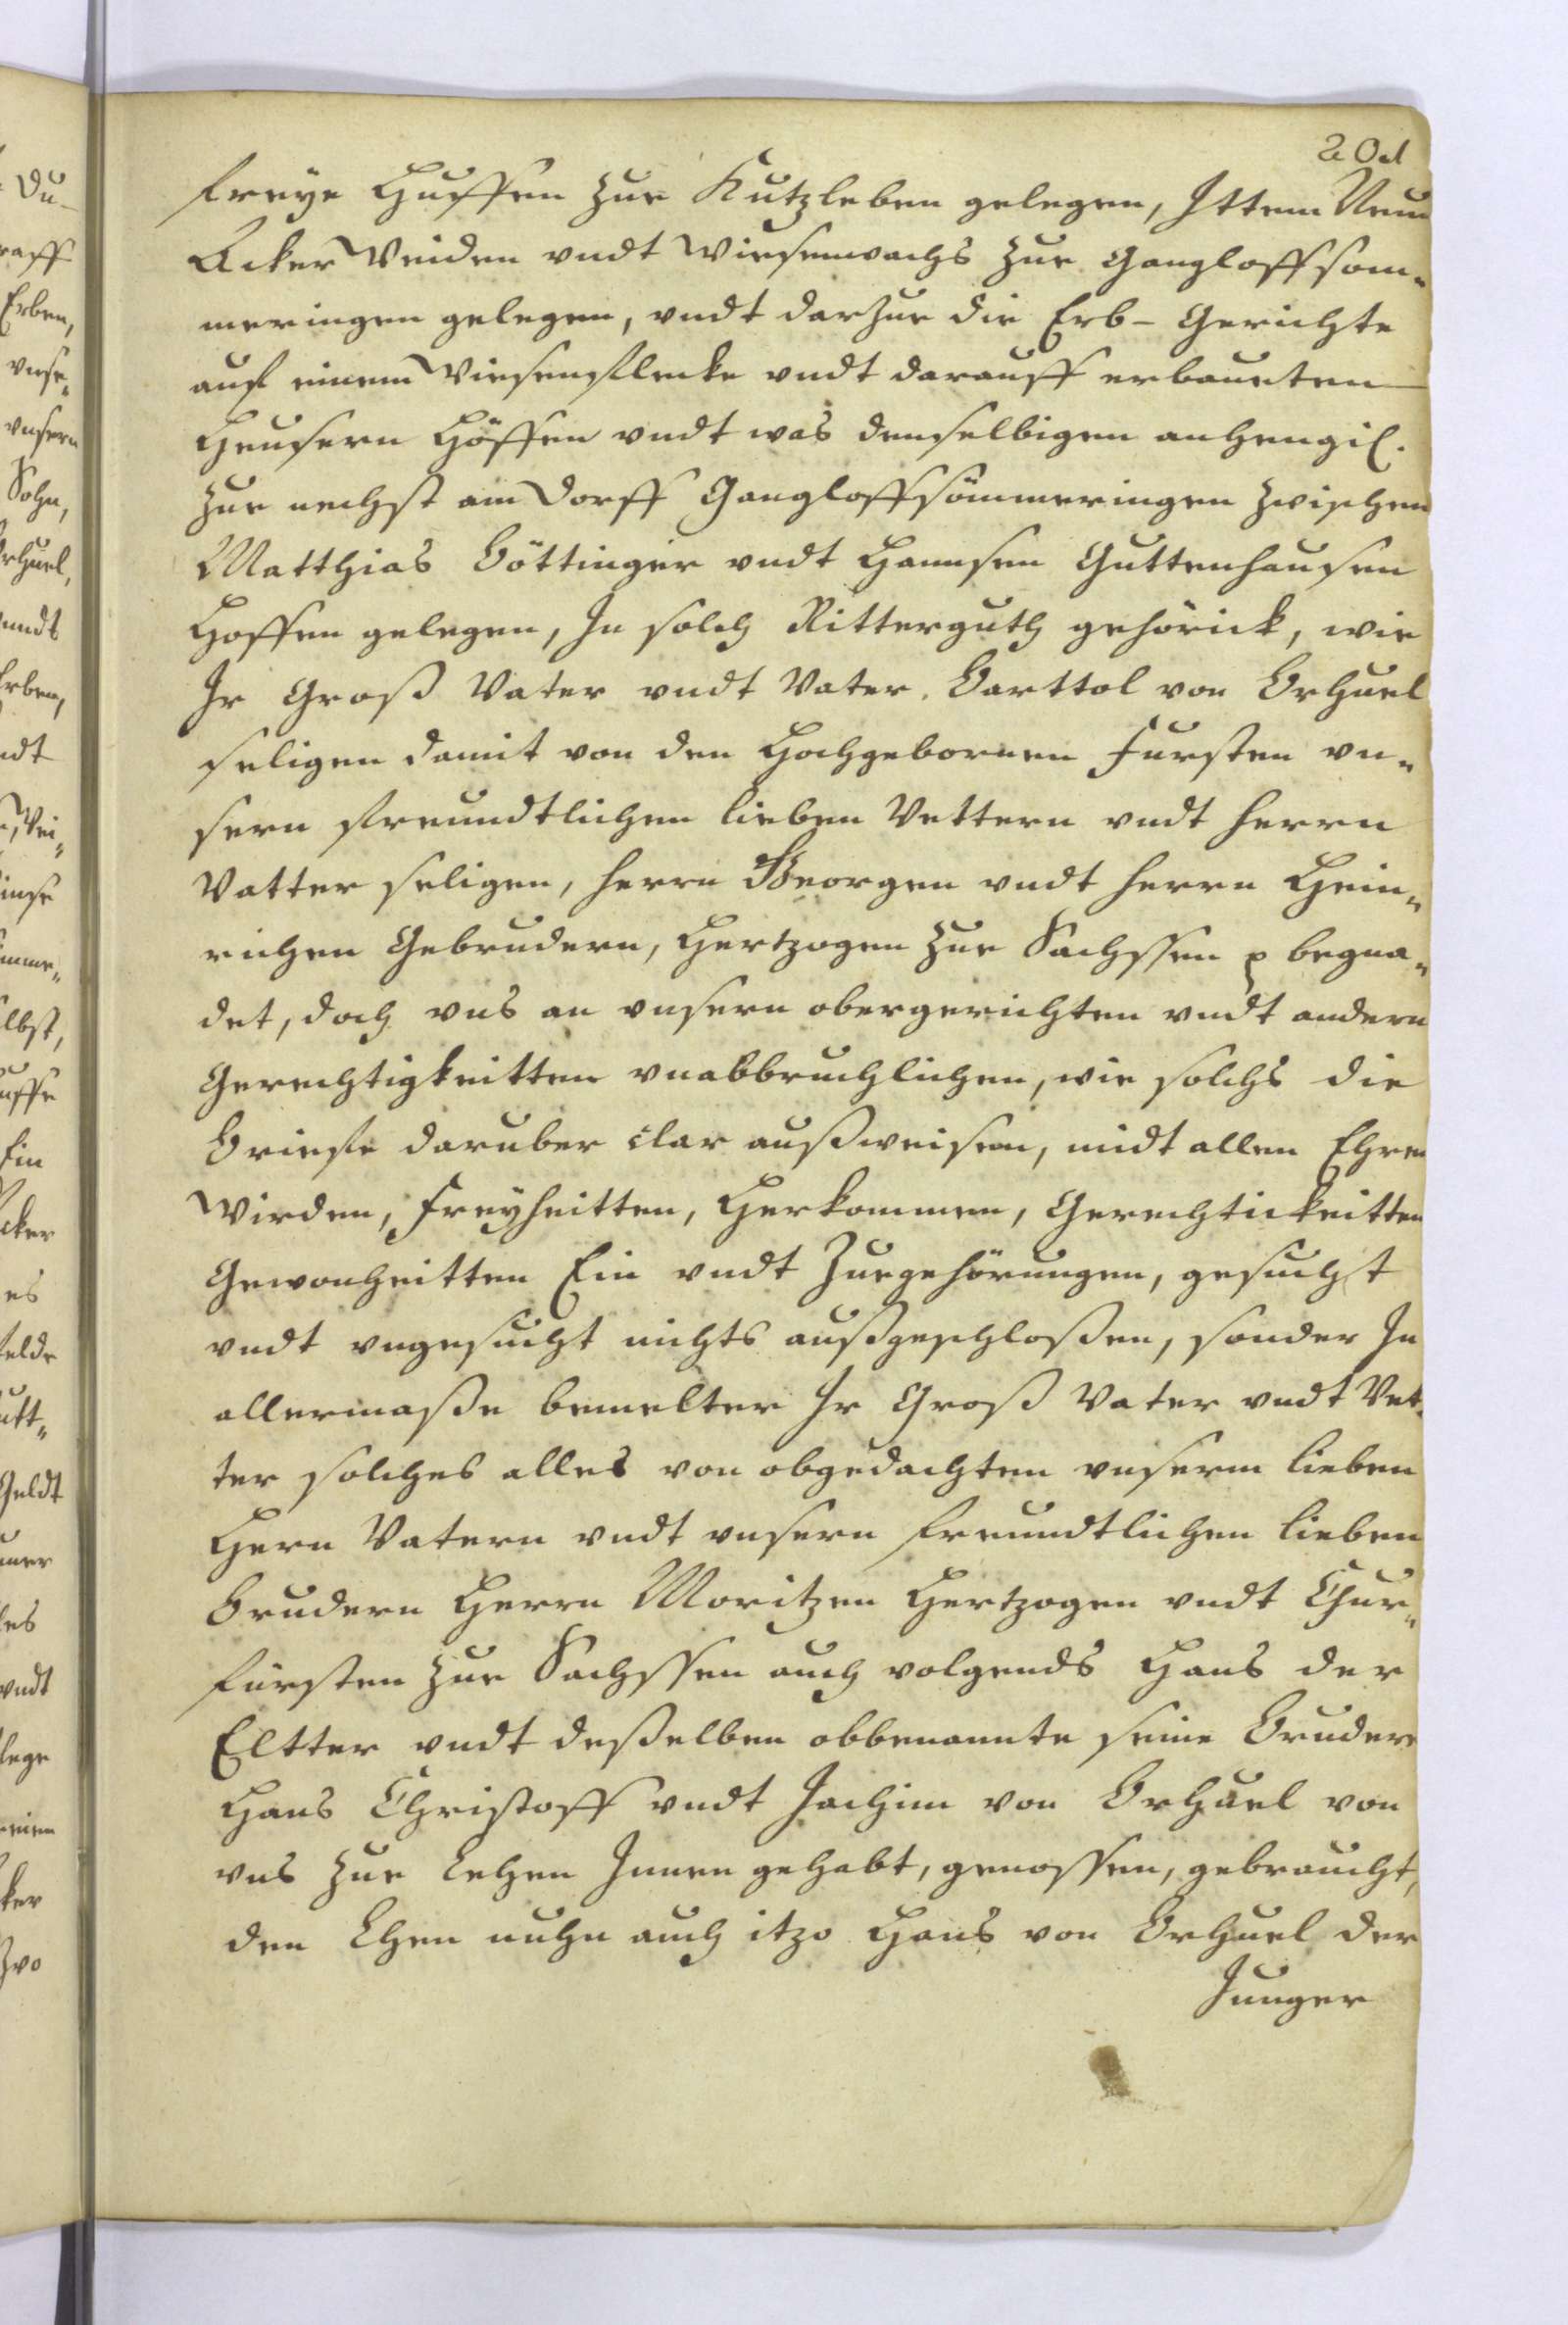 freye Huffen zue Kutzleben gelegen, Ittem Neun
Acker Weiden vndt Wiesenwachs zue Gangloffsom„
meringen gelegen, vndt darzue die Erb- Gerichte
auf einem Wiesenflecke vndt darauff erbaueten
Heusern Höffen vndt was denselbigen anhengig.
zue nechst am Dorff Gangloffsömmeringen zwischen
Matthias Böttinger vndt Hannsen Guttenhausen
Hoffen gelegen, In solch Ritterguth gehörick, wie
Ir Groß Vater vndt Vater. Barttol von Orhuel
seligen damit von den Hochgebornen Fursten vn„
sern freundtlichen lieben Vettern vndt herrn
Vatter seligen, herrn Georgen vndt herrn Hein„
richen Gebrudern, Hertzogen zue Sachssen p begna„
det, doch vns an vnsern obergerichten vndt andern
Gerechtigkeitten vnabbruchlichen, wie solchs die
Briefe daruber clar außweisen, midt allen Ehren
Wirden, freyheitten, Herkommen, Gerechtickeitten
Gewonheitten Ein vndt Zuegehörungen, gesucht
vndt vngesucht nichts außgeschloßen, sonder In
allermaße bemelter Ir Groß Vater vndt Vet„
ter solches alles von obgedachten vnserm lieben
Hern Vatern vndt vnsern freundtlichen lieben
Brudern Herrn Moritzen Hertzogen vndt Chur„
fürsten zue Sachssen auch volgends Hans der
Eltter vndt deßelben obbenannte seine Bruder
Hans Christoff vndt Jachim von Orhuel von
vns zue Lehen Innen gehabt, genossen, gebraucht,
den Lhen nuhn auch itzo Hans von Orhuel der
Junger